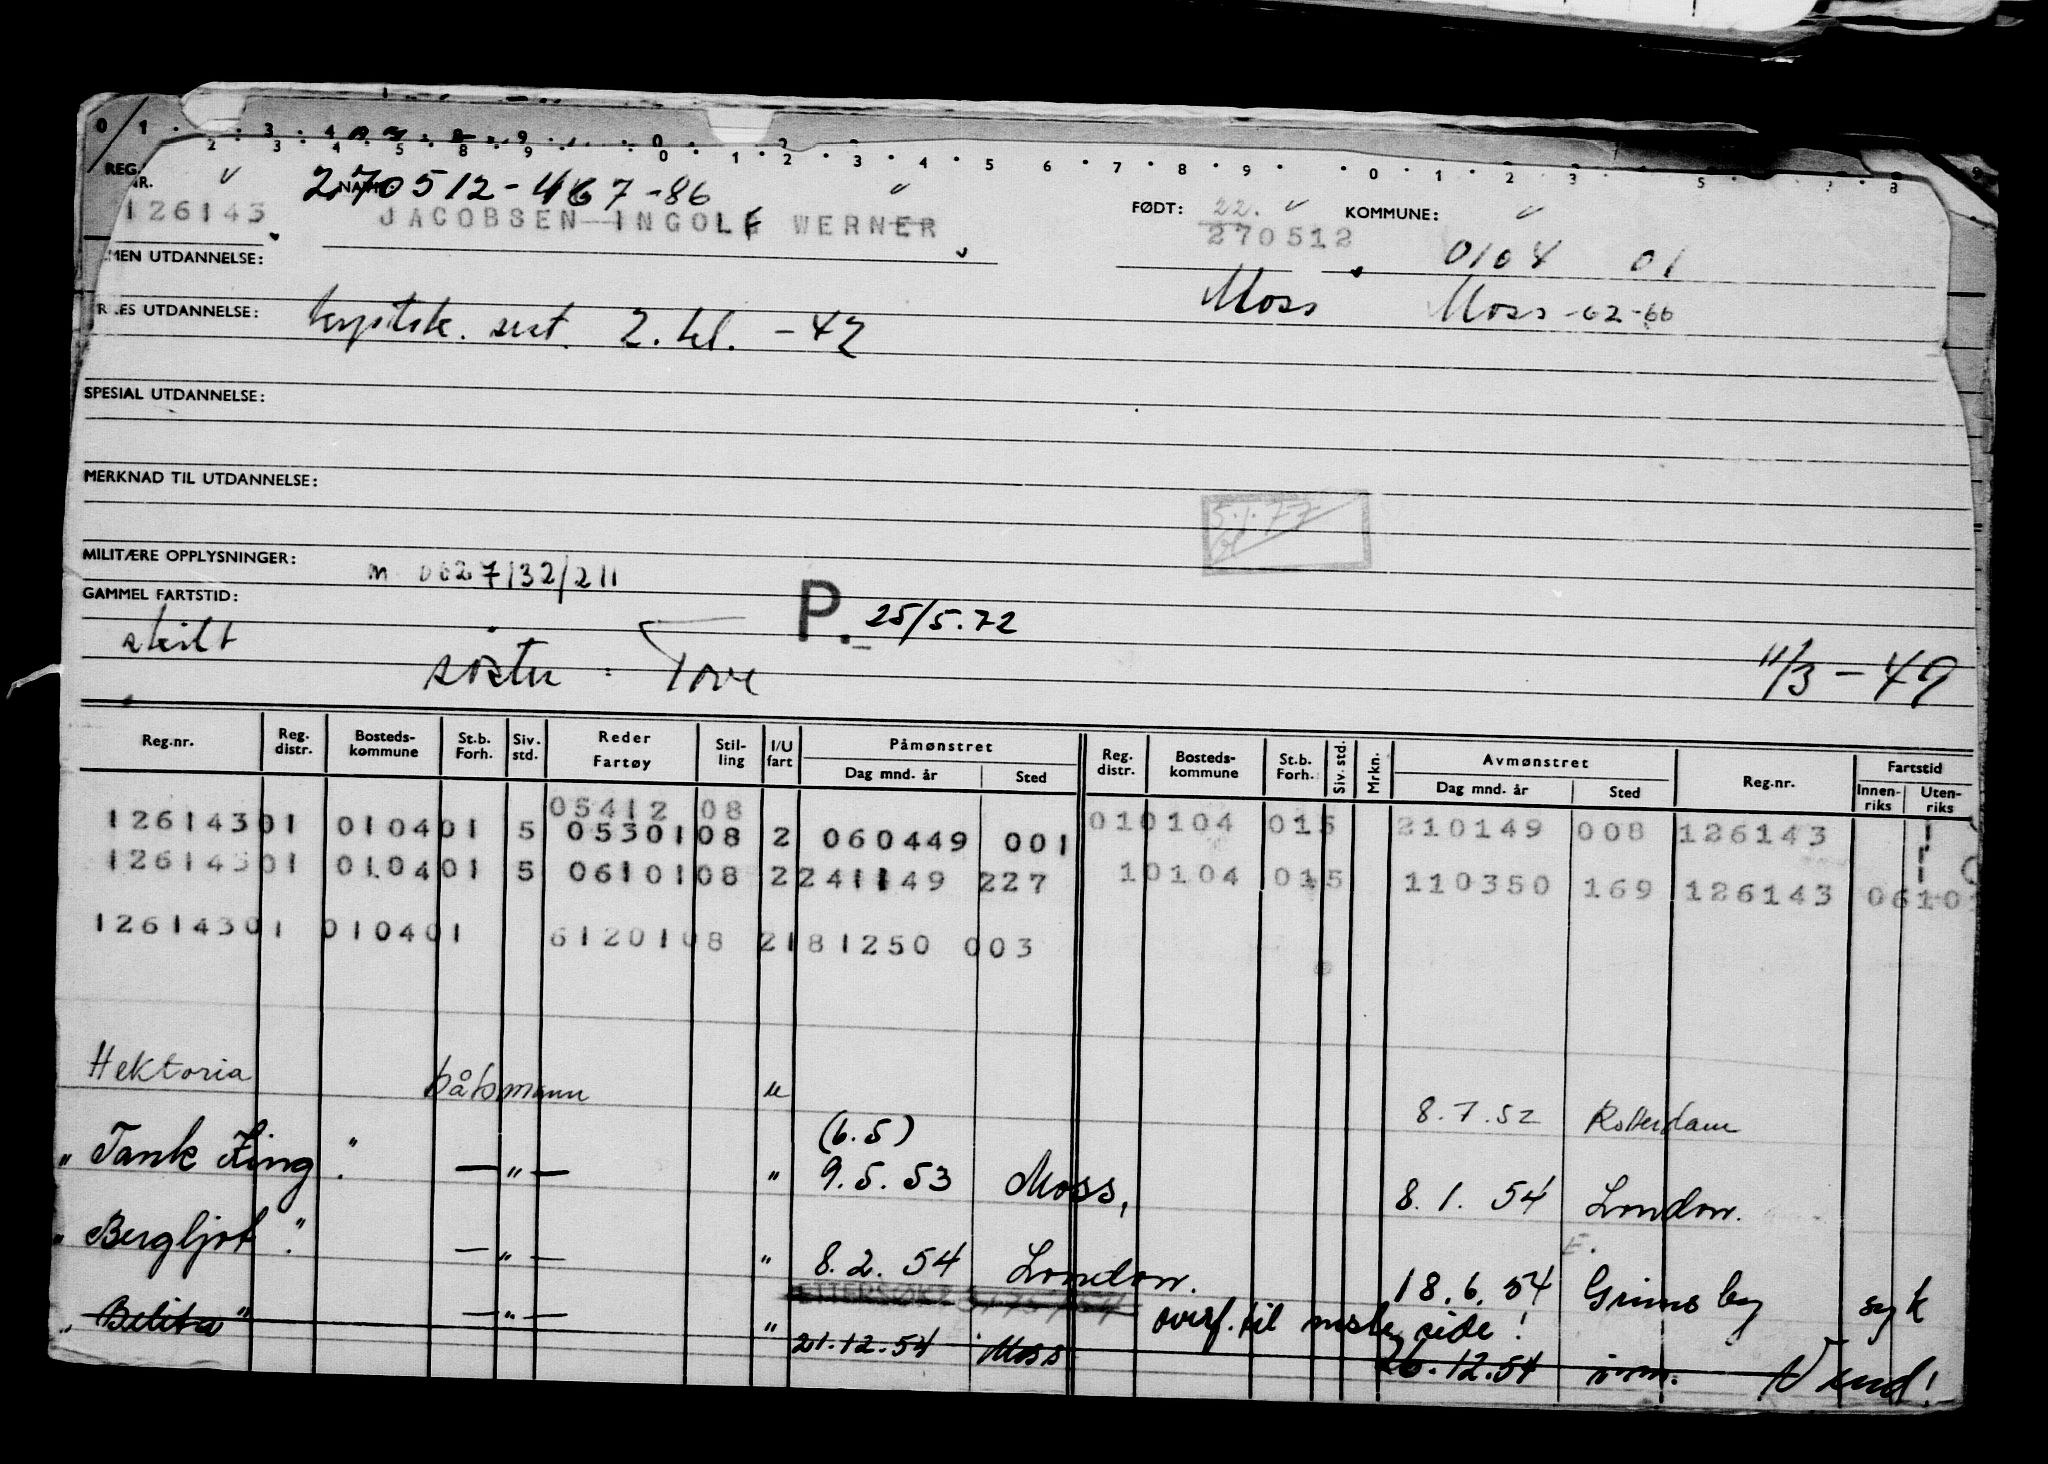 REG. NR. 126143
NAVN: 270512-467-86
JACOBSEN INGOLF WERNER
FØDT: 22. 270512
KOMMUNE: 0104 01
MEN UTDANNELSE:
Moss Moss -62-66
ES UTDANNELSE: sert. 2. kl. -42
SPESIAL UTDANNELSE:
MERKNAD TIL UTDANNELSE:
5.1.77
MILITÆRE OPPLYSNINGER: m 0627/32/211
GAMMEL FARTSTID:
P. 25/5.72
skilt
søster : Tove
11/3 - 49
Reg.nr. Reg. distr. Bosteds-kommune St.b. Forh. Siv. std. Reder Fartøy Stil-ling I/U fart Påmønstret Dag mnd. år Sted Reg. distr. Bosteds-kommune St.b. Forh. Siv. std. Mrkn. Avmønstret Dag mnd. år Sted Reg.nr. Fartstid Innen-riks Uten-riks
05412 08
126143 01 0104 01 5 05301 08 2 060449 001 01 0104 01 5 210149 008 126143
126143 01 0104 01 5 06101 08 2 241149 227 1 0104 01 5 110350 169 126143 06101
126143 01 0104 01 61201 08 2 181250 003
Hektoria båtsmann " 8.7.52 Rotterdam
(6.5)
"Tank King". — " — " 9.5.53 Moss, 8.1.54 London.
"Bergljot". — " — " 8.2.54 London. 18.6.54 Grimsby syk
ETTERSØKT
overf. til neste side!
"Belita" — " — " 21.12.54 Moss 26.12.54